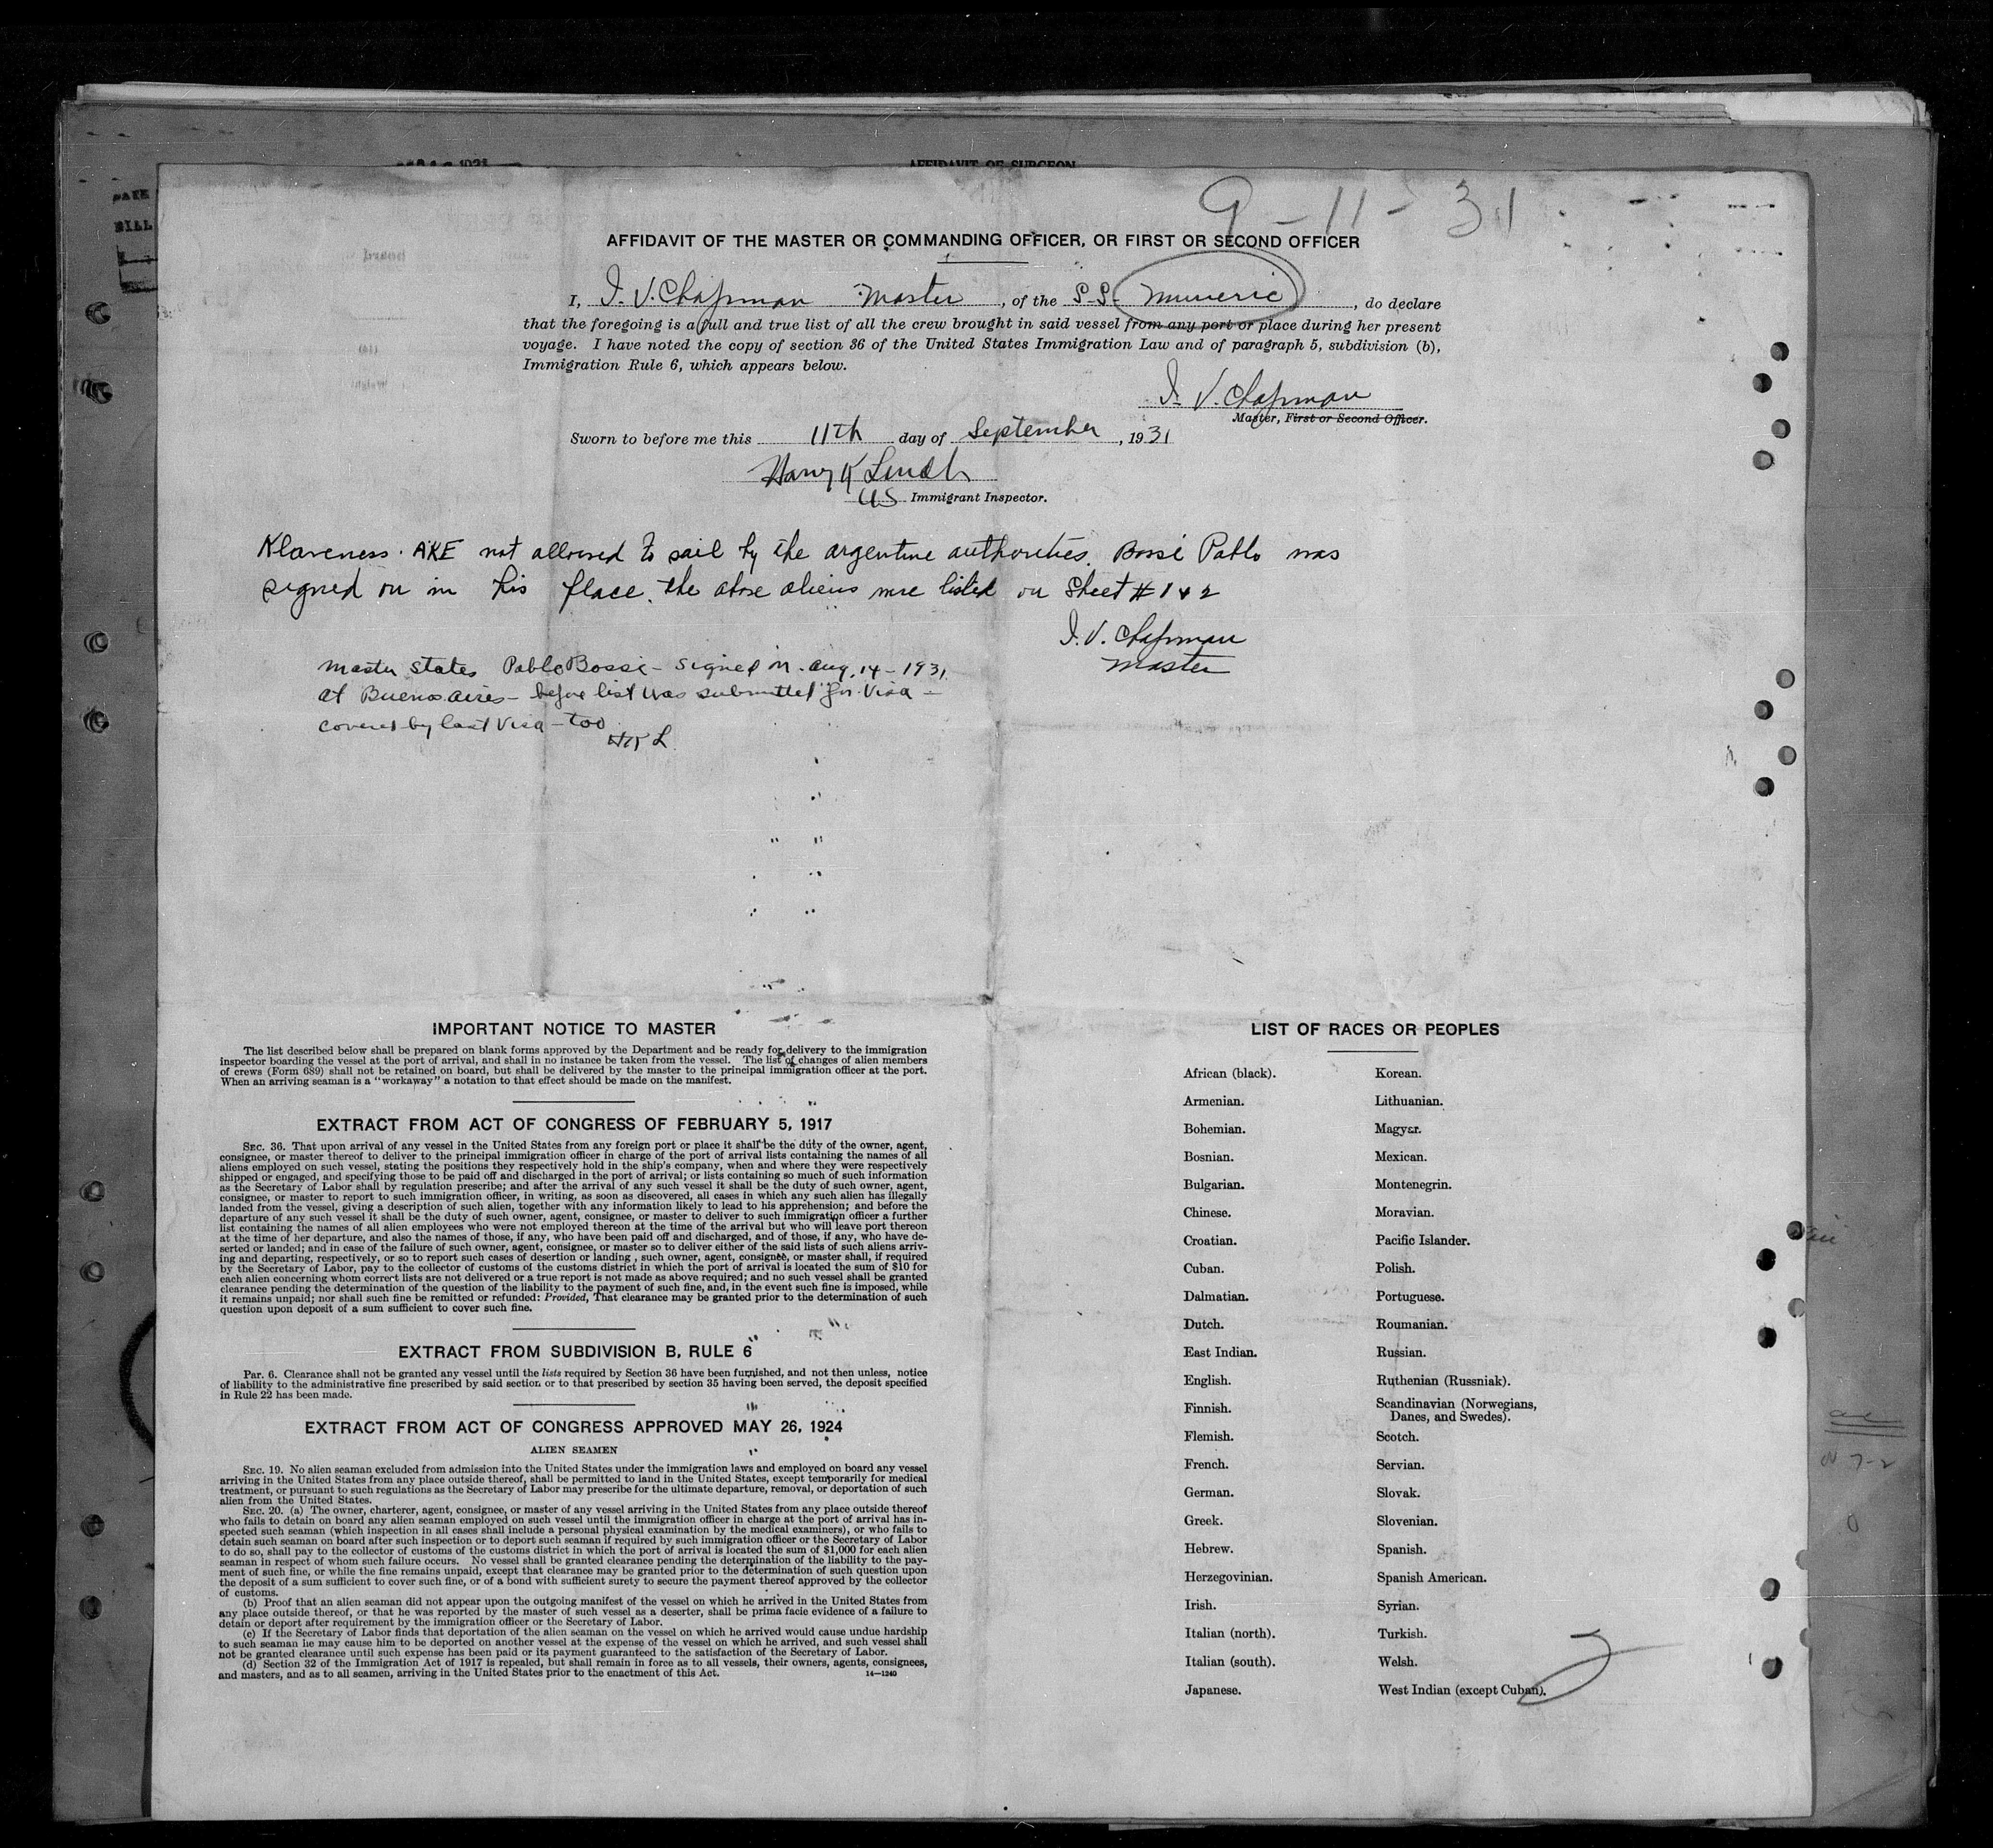 AFFIDAVIT OF SURGEON
9-11-31
AFFIDAVIT OF THE MASTER OR COMMANDING OFFICER, OR FIRST OR SECOND OFFICER
I, I. V. Chapman Master, of the S.S. Muneric, do declare
that the foregoing is a full and true list of all the crew brought in said vessel from any port or place during her present
voyage. I have noted the copy of section 36 of the United States Immigration Law and of paragraph 5, subdivision (b),
Immigration Rule 6, which appears below.
I. V. Chapman
Master, First or Second Officer.
Sworn to before me this 11th day of September, 1931
Harry K
US Immigrant Inspector.
Klaveness. AKE not allowed to sail by the argentine authorities. Bossi Pablo was
signed on in his place. the above aliens were listed on Sheet # 1 & 2
I. V. Chapman
Master
Master states Pablo Bossi - signed on Aug. 14 - 1931
at Buenos Aires - before list was submitted for Visa -
covered by last Visa - too
HKL
IMPORTANT NOTICE TO MASTER
The list described below shall be prepared on blank forms approved by the Department and be ready for delivery to the immigration
inspector boarding the vessel at the port of arrival, and shall in no instance be taken from the vessel. The list of changes of alien members
of crews (Form 689) shall not be retained on board, but shall be delivered by the master to the principal immigration officer at the port.
When an arriving seaman is a "workaway" a notation to that effect should be made on the manifest.
EXTRACT FROM ACT OF CONGRESS OF FEBRUARY 5, 1917
SEC. 36. That upon arrival of any vessel in the United States from any foreign port or place it shall be the duty of the owner, agent,
consignee, or master thereof to deliver to the principal immigration officer in charge of the port of arrival lists containing the names of all
aliens employed on such vessel, stating the positions they respectively hold in the ship's company, when and where they were respectively
shipped or engaged, and specifying those to be paid off and discharged in the port of arrival; or lists containing so much of such information
as the Secretary of Labor shall by regulation prescribe; and after the arrival of any such vessel it shall be the duty of such owner, agent,
consignee, or master to report to such immigration officer, in writing, as soon as discovered, all cases in which any such alien has illegally
landed from the vessel, giving a description of such alien, together with any information likely to lead to his apprehension; and before the
departure of any such vessel it shall be the duty of such owner, agent, consignee, or master to deliver to such immigration officer a further
list containing the names of all alien employees who were not employed thereon at the time of the arrival but who will leave port thereon
at the time of her departure, and also the names of those, if any, who have been paid off and discharged, and of those, if any, who have de-
serted or landed; and in case of the failure of such owner, agent, consignee, or master so to deliver either of the said lists of such aliens arriv-
ing and departing, respectively, or so to report such cases of desertion or landing , such owner, agent, consignee, or master shall, if required
by the Secretary of Labor, pay to the collector of customs of the customs district in which the port of arrival is located the sum of $10 for
each alien concerning whom correct lists are not delivered or a true report is not made as above required; and no such vessel shall be granted
clearance pending the determination of the question of the liability to the payment of such fine, and, in the event such fine is imposed, while
it remains unpaid; nor shall such fine be remitted or refunded: Provided, That clearance may be granted prior to the determination of such
question upon deposit of a sum sufficient to cover such fine.
EXTRACT FROM SUBDIVISION B, RULE 6
PAR. 6. Clearance shall not be granted any vessel until the lists required by Section 36 have been furnished, and not then unless, notice
of liability to the administrative fine prescribed by said section or to that prescribed by section 35 having been served, the deposit specified
in Rule 22 has been made.
EXTRACT FROM ACT OF CONGRESS APPROVED MAY 26, 1924
ALIEN SEAMEN
SEC. 19. No alien seaman excluded from admission into the United States under the immigration laws and employed on board any vessel
arriving in the United States from any place outside thereof, shall be permitted to land in the United States, except temporarily for medical
treatment, or pursuant to such regulations as the Secretary of Labor may prescribe for the ultimate departure, removal, or deportation of such
alien from the United States.
SEC. 20. (a) The owner, charterer, agent, consignee, or master of any vessel arriving in the United States from any place outside thereof
who fails to detain on board any alien seaman employed on such vessel until the immigration officer in charge at the port of arrival has in-
spected such seaman (which inspection in all cases shall include a personal physical examination by the medical examiners), or who fails to
detain such seaman on board after such inspection or to deport such seaman if required by such immigration officer or the Secretary of Labor
to do so, shall pay to the collector of customs of the customs district in which the port of arrival is located the sum of $1,000 for each alien
seaman in respect of whom such failure occurs. No vessel shall be granted clearance pending the determination of the liability to the pay-
ment of such fine, or while the fine remains unpaid, except that clearance may be granted prior to the determination of such question upon
the deposit of a sum sufficient to cover such fine, or of a bond with sufficient surety to secure the payment thereof approved by the collector
of customs.
(b) Proof that an alien seaman did not appear upon the outgoing manifest of the vessel on which he arrived in the United States from
any place outside thereof, or that he was reported by the master of such vessel as a deserter, shall be prima facie evidence of a failure to
detain or deport after requirement by the immigration officer or the Secretary of Labor.
(c) If the Secretary of Labor finds that deportation of the alien seaman on the vessel on which he arrived would cause undue hardship
to such seaman he may cause him to be deported on another vessel at the expense of the vessel on which he arrived, and such vessel shall
not be granted clearance until such expense has been paid or its payment guaranteed to the satisfaction of the Secretary of Labor.
(d) Section 32 of the Immigration Act of 1917 is repealed, but shall remain in force as to all vessels, their owners, agents, consignees,
and masters, and as to all seamen, arriving in the United States prior to the enactment of this Act. 14—1240
LIST OF RACES OR PEOPLES
African (black).
Armenian.
Bohemian.
Bosnian.
Bulgarian.
Chinese.
Croatian.
Cuban.
Dalmatian.
Dutch.
East Indian.
English.
Finnish.
Flemish.
French.
German.
Greek.
Hebrew.
Herzegovinian.
Irish.
Italian (north).
Italian (south).
Japanese.
Korean.
Lithuanian.
Magyar.
Mexican.
Montenegrin.
Moravian.
Pacific Islander.
Polish.
Portuguese.
Roumanian.
Russian.
Ruthenian (Russniak).
Scandinavian (Norwegians,
Danes, and Swedes).
Scotch.
Servian.
Slovak.
Slovenian.
Spanish.
Spanish American.
Syrian.
Turkish.
Welsh.
West Indian (except Cuban).